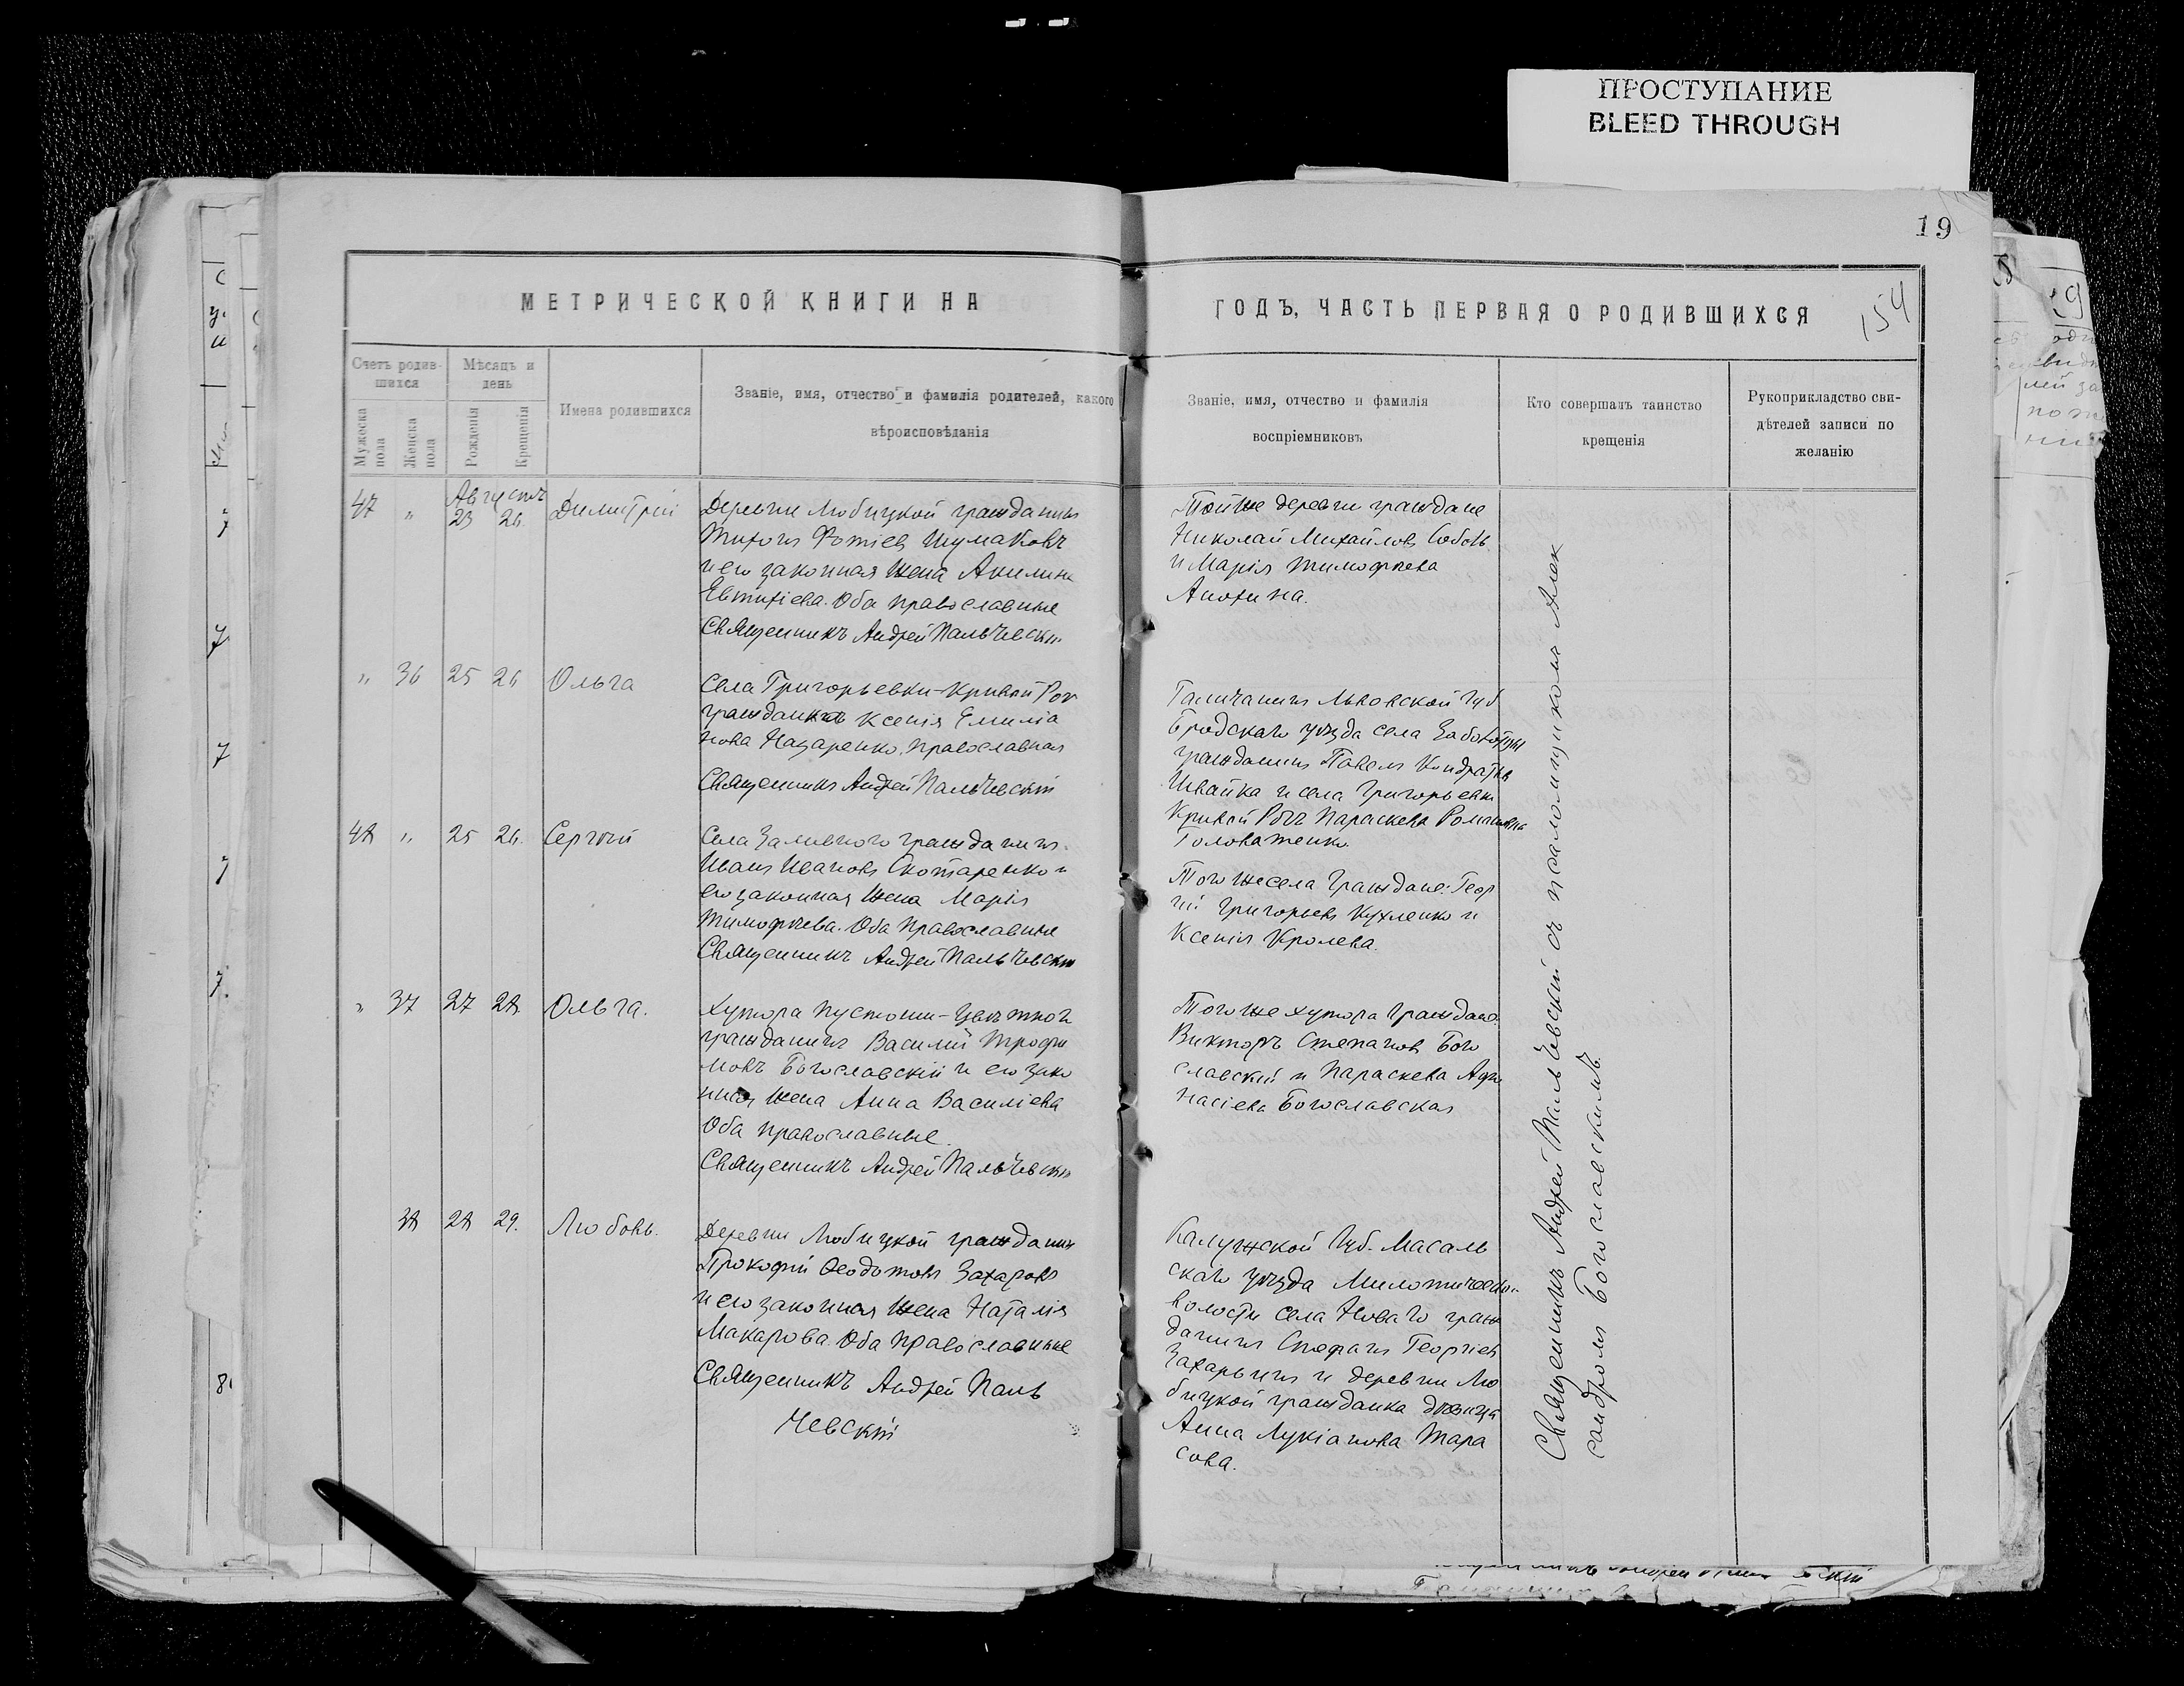 ПРОСТУПАНИЕ
BLEED THROUGH
19
154
МЕТРИЧЕСКОЙ КНИГИ НА
ГОДЪ, ЧАСТЬ ПЕРВАЯ О РОДИВШИХСЯ
Счетъ родив-
шихся
Мужеска пола
Женска пола
Мѣсяцъ и
день
Рожденія
Крещенія
Имена родившихся
Званіе, имя, отчество и фамилія родителей, какого
вѣроисповѣданія
Званіе, имя, отчество и фамилія
воспріемниковъ
Кто совершалъ таинство
крещенія
Рукоприкладство сви-
дѣтелей записи по
желанію
Августъ
47 " 23 26. Димитрій
Деревни Любицкой гражданинъ
Тихонъ Фотіевъ Шумаковъ
и его законная жена Акилина
Евтихіева. Оба православные
Священникъ Андрей Пальчевскій
Той же деревни граждане
Николай Михайловъ Соболь
и Марія Тимофѣева
Анохина.
" 36 25 26 Ольга
Села Григорьевки-Кривой Рогъ
гражданка Ксенія Емиліа
нова Назаренко, православная
Священникъ Андрей Пальчевскій
Галичанинъ Львовской губ
Бродскаго уѣзда села
гражданинъ Павелъ Кондратьевъ
Швайка и села Григорьевки
Кривой Рогъ Параскева Романовна
Головатенко
48 " 25 26. Сергѣй
Села Заливного гражданинъ
Иванъ Ивановъ Скотаренко и
его законная жена Марія
Тимофѣева. Оба православные
Священникъ Андрей Пальчевскій
Того же села граждане: Геор
гій Григорьевъ Кухленко и
Ксенія Кролева.
" 37 27 28. Ольга.
Хутора Пустоши-Цвѣтной
гражданинъ Василій Трофи
мовъ Богославскій и его зако
нная жена Анна Василіева
Оба православные.
Священникъ Андрей Пальчевскій
Того же хутора граждане:
Викторъ Степановъ Бого
славскій и Параскева Афа
насіева Богославская
38 28 29. Любовь.
Деревни Любицкой гражданинъ
Прокофій Ѳеодотовъ Захаровъ
и его законная жена Наталія
Макарова. Оба православные
Священникъ Андрей Паль
чевскій
Калужской губ. Масаль
скаго уѣзда
волости села Новаго граж
данинъ Стефанъ Георгіевъ
Захарьинъ и деревни Лю
бицкой гражданка дѣвица
Анна Лукіанова Тара
сова.
Священникъ Андрей Пальчевскій съ псаломщикомъ Алек
сандромъ Богославскимъ.